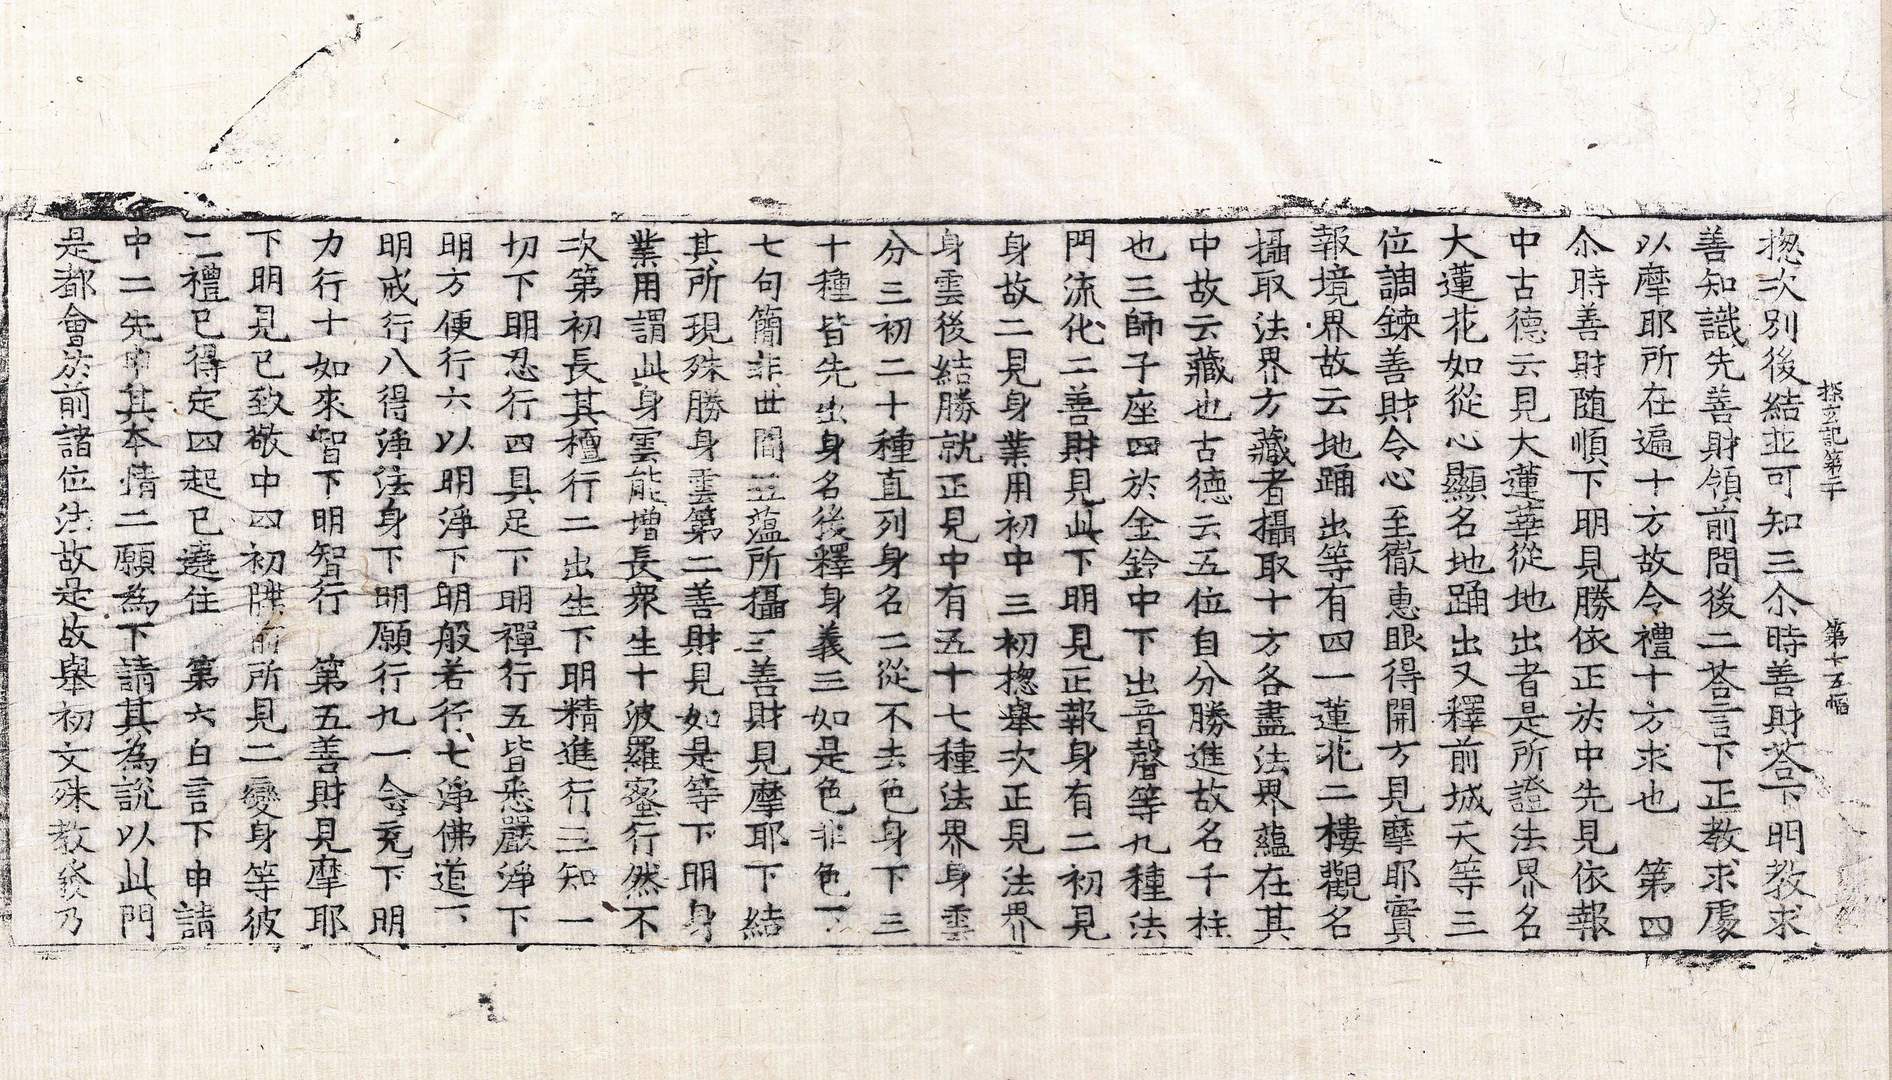 探玄記第二十 第十五幅
揔次別後結並可知三尒時善財荅下明教求
善知識先善財領前問後二荅言下正教求處
以摩耶所在遍十方故令禮十方求也 第四
尒時善財随順下明見勝依正於中先見依報
中古德云見大蓮華從地出者是所證法界名
大蓮花如從心顯名地踊出又釋前城天等三
位調鍊善財令心至徹惠眼得開方見摩耶實
報境界故云地踊出等有四一蓮花二樓觀名
攝取法界方藏者攝取十方各盡法界蘊在其
中故云藏也古德云五位自分勝進故名千柱
也三師子座四於金鈴中下出音聲等九種法
門流化二善財見此下明見正報身有二初見
身故二見身業用初中三初揔舉次正見法界
身雲後結勝就正見中有五十七種法界身雲
分三初二十種直列身名二從不去色身下三
十種皆先出身名後釋身義三如是色非色下
七句簡非世間五蘊所攝三善財見摩耶下結
其所現殊勝身雲第二善財見如是等下明身
業用謂此身雲能增長衆生十波羅蜜行然不
次第初長其檀行二出生下明精進行三知一
切下明忍行四具足下明禪行五皆悉嚴淨下
明方便行六以明淨下明般若行七淨佛道下
明戒行八得淨法身下明願行九一令充下明
力行十如來智下明智行 第五善財見摩耶
下明見已致敬中四初牒前所見二變身等彼
二禮已得定四起已遶住 第六白言下申請
中二先申其本情二願為下請其為說以此門
是都會於前諸位法故是故舉初文殊教發乃